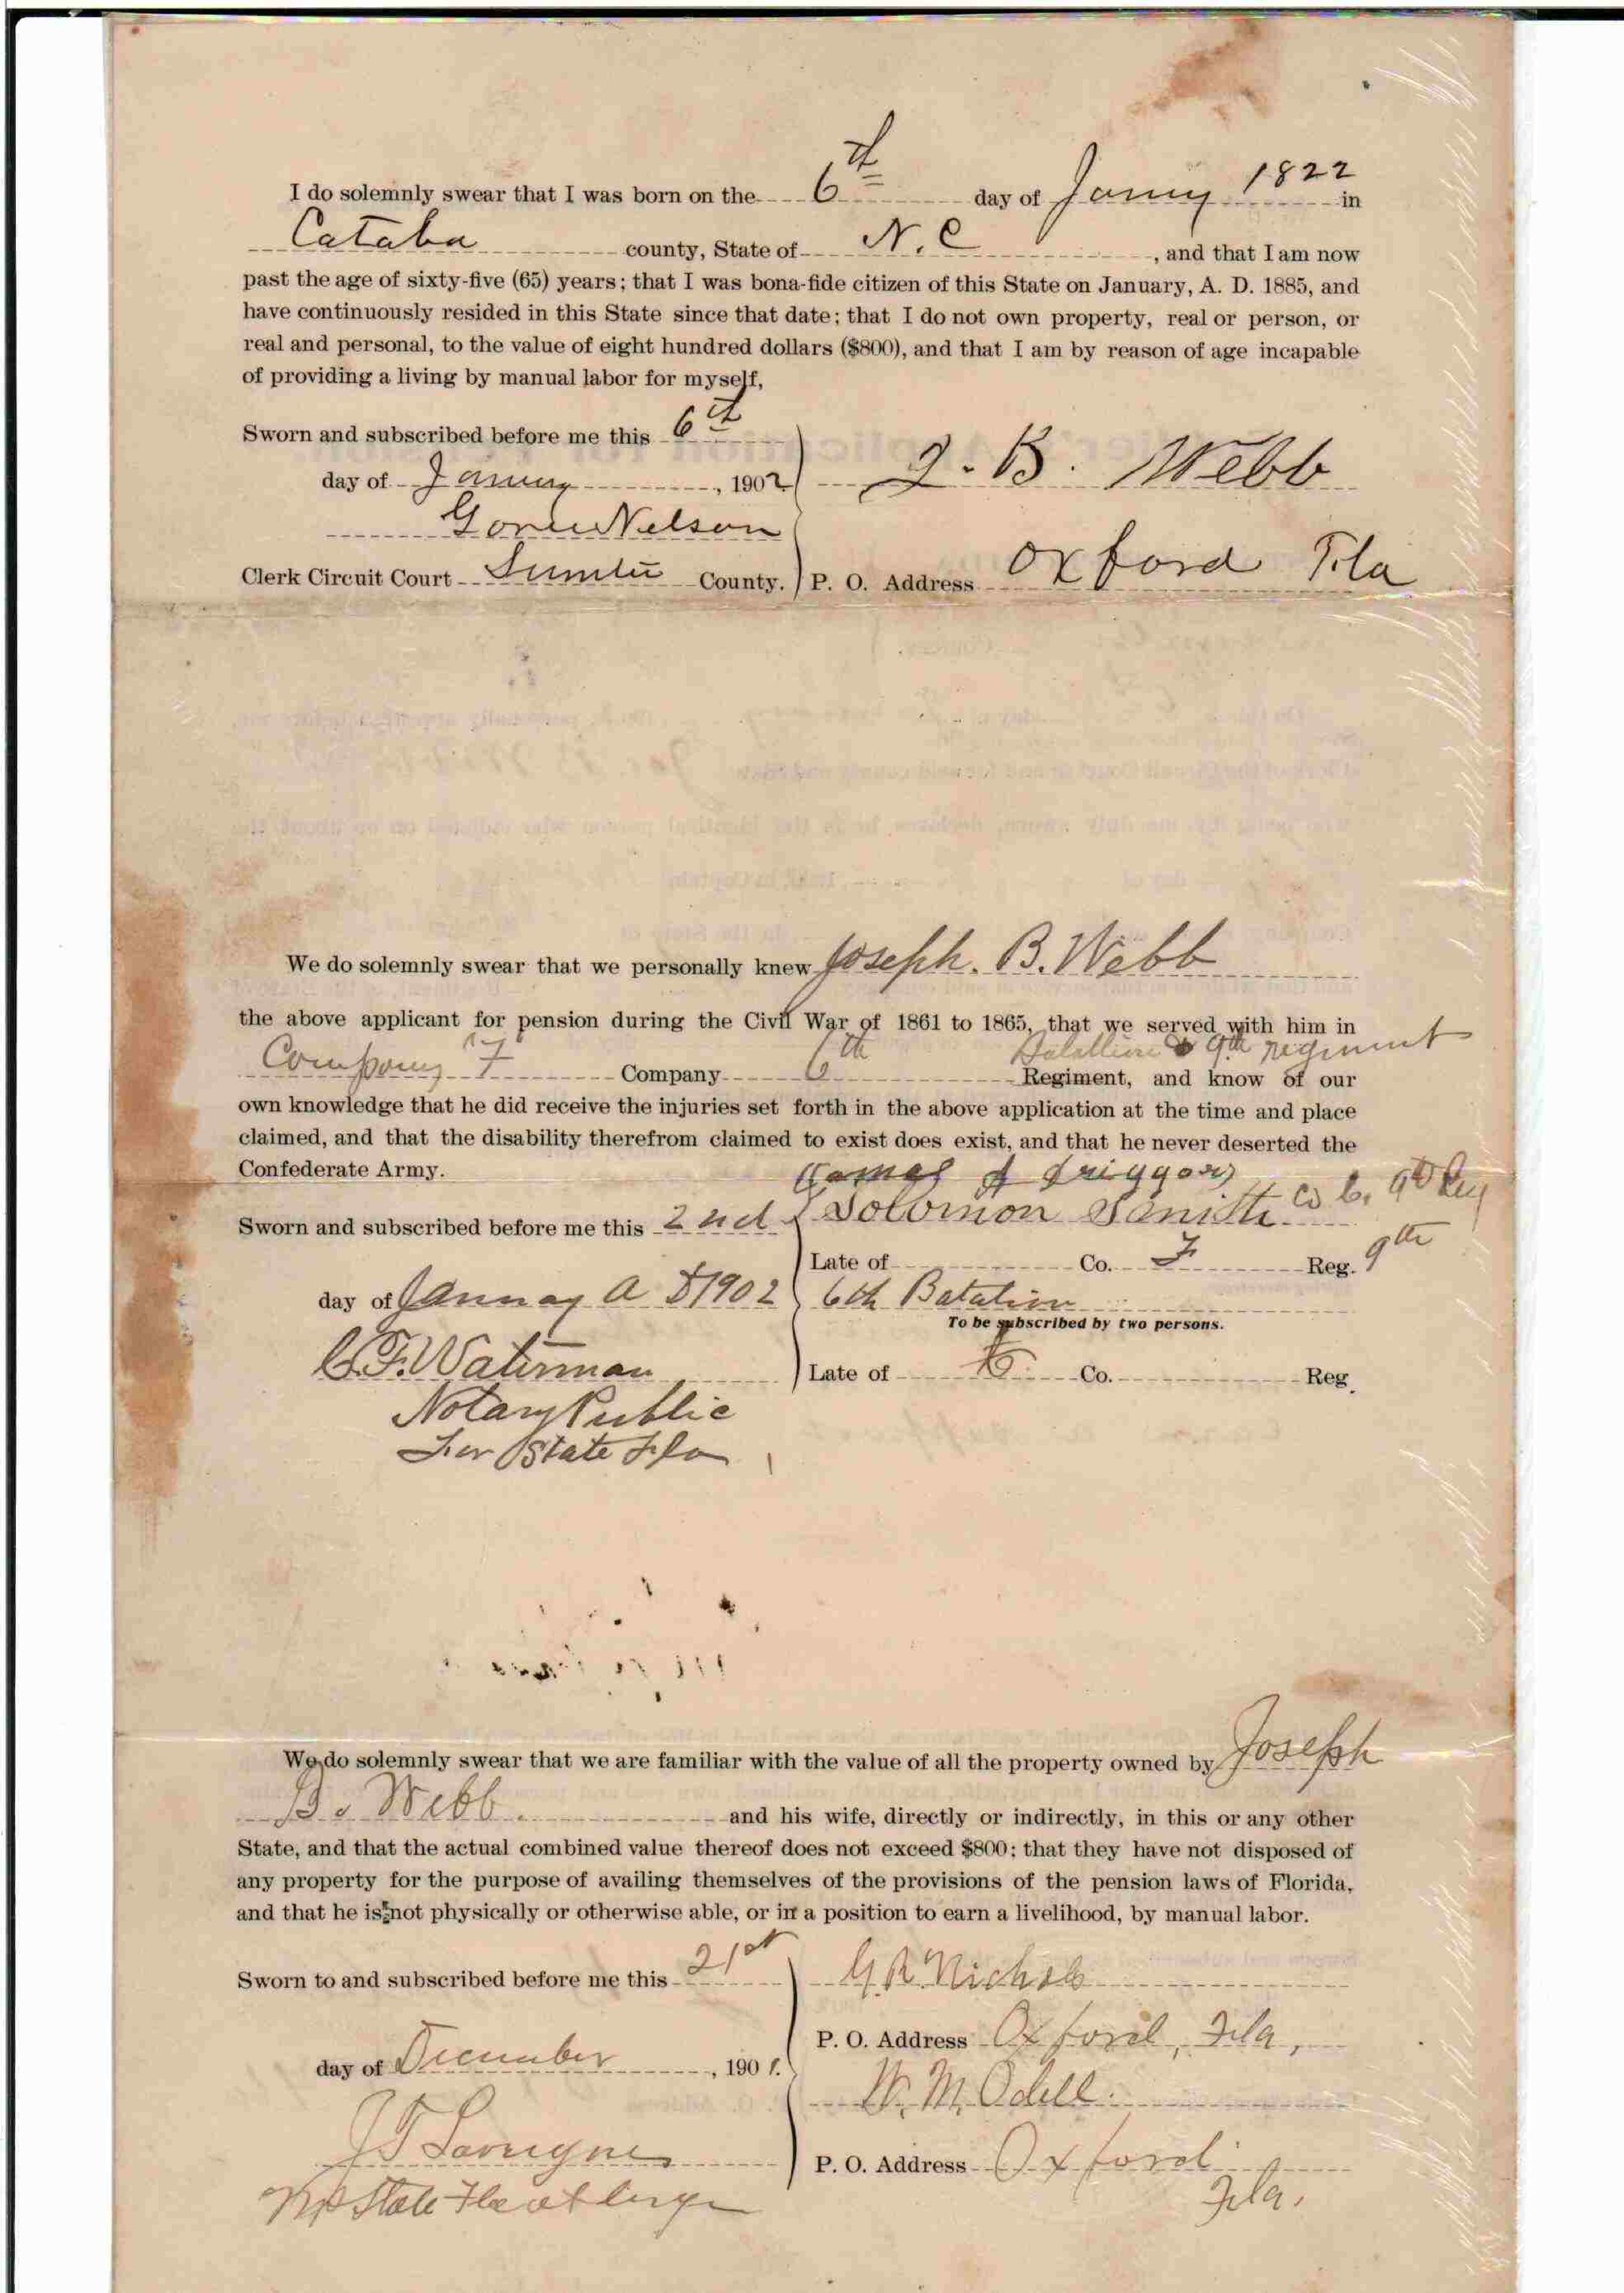 I do solemnly swear that I was born on the 6th day of Jany 1822 in
Cataba county, State of N.C, and that I am now
past the age of sixty-five (65) years; that I was bona-fide citizen of this State on January, A. D. 1885, and
have continuously resided in this State since that date; that I do not own property, real or person, or
real and personal, to the value of eight hundred dollars ($800), and that I am by reason of age incapable
of providing a living by manual labor for myself,
Sworn and subscribed before me this 6th
day of January, 1902
J. B. Webb
Nelson
Clerk Circuit Court Sumter County.
P. O. Address Oxford Fla
We do solemnly swear that we personally knew Joseph. B. Webb
the above applicant for pension during the Civil War of 1861 to 1865, that we served with him in
Batallion & 9th regiment
Company F Company 6th Regiment, and know of our
own knowledge that he did receive the injuries set forth in the above application at the time and place
claimed, and that the disability therefrom claimed to exist does exist, and that he never deserted the
Confederate Army.
James
Sworn and subscribed before me this 2nd
Solomon Smith Co 9th Reg
Late of Co. F Reg. 9th
day of January A D 1902
6th Batalion
To be subscribed by two persons.
C. F. Waterman
Late of Co. Reg.
Notary Public
For State Fla
We do solemnly swear that we are familiar with the value of all the property owned by Joseph
B. Webb. and his wife, directly or indirectly, in this or any other
State, and that the actual combined value thereof does not exceed $800; that they have not disposed of
any property for the purpose of availing themselves of the provisions of the pension laws of Florida,
and that he is not physically or otherwise able, or in a position to earn a livelihood, by manual labor.
Sworn to and subscribed before me this 21st
G. R. Nichols
P. O. Address Oxford, Fla,
day of December, 1901.
W. M. Odell.
P. O. Address Oxford
Fla.
State Fla at large